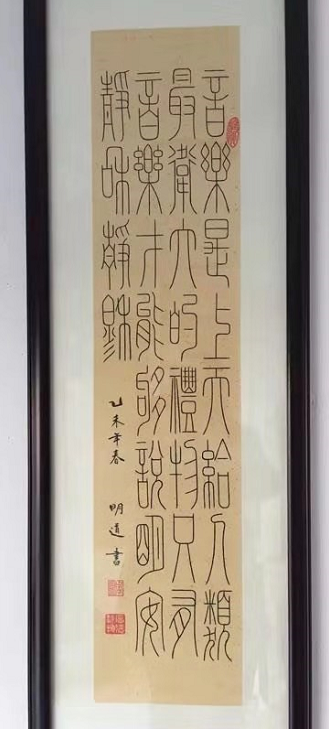 音樂是上天給人類
最衛大的禮物只有
音樂才能够說明安
靜和靜穆
乙未年春 明道書